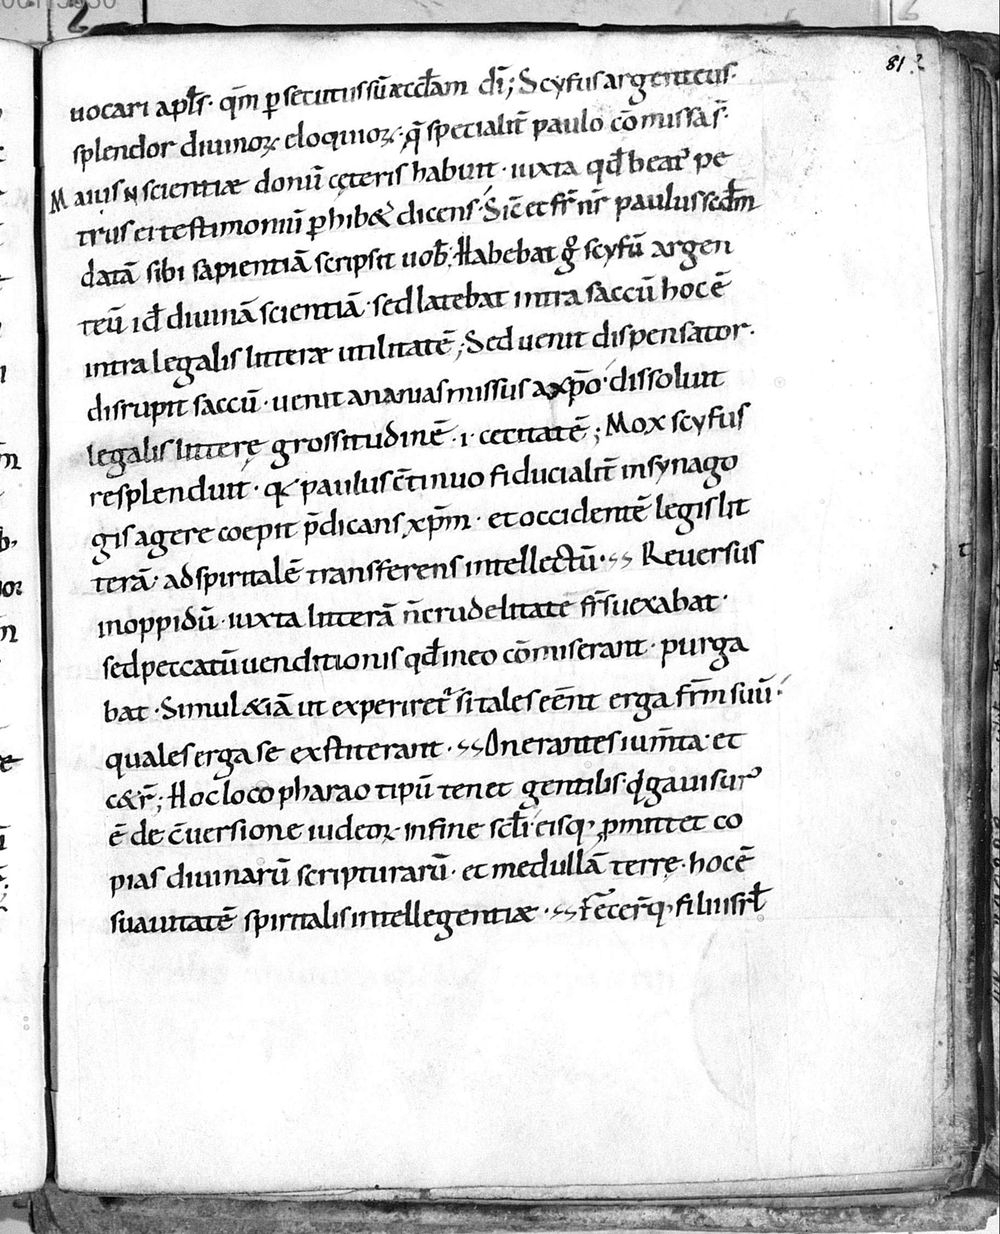 81
uocari apl̄s· qm̄ ꝑsecutus sū æccl̄am dī; Scyfus argenteus·
splendor diuinoꝝ eloquioꝝ· q̄ specialit̄ paulo cōmissa s̄·
Maius N scientiæ donū cęteris habuit· iuxta qđ beat᷒ pe
trus ei testimoniū ꝑhib& dicens· Sic̄ et fr̄ nr̄ paulus scđm
datā sibi sapientiā scripsit uob̄· Habebat g̊ scyfū argen
teū id̄ diuinā scientiā· sed latebat intra saccū hoc ē
intra legalis litteræ utilitatē; Sed uenit dispensator·
disrupit saccū· uenit ananias missus a xp̄o· dissoluit
legalis litterę grossitudinē ·i· cecitatē; Mox scyfus
resplenduit· q paulus c̄tinuo fiducialit̄ in synago
gis agere coepit p̄dicans xp̄m· et occidentē legis lit
terā· ad spiritalē transferens intellectū· Reuersus
in oppidū· iuxta litterā n̄ crudelitatē fr̄s uexabat·
sed peccatū uenditionis qđ in eo cōmiserant· purga
bat· Simul &iā ut experiret᷒ si tales eēnt erga fr̄m suū·
quales erga se exstiterant· Onerantes ium̄ta· et
c&r̄; Hoc loco pharao tipū tenet gentib;s· q gauisur᷒
ē de c̄uersione iudeoꝝ in fine sc̄li eisq; ꝓmittet co
pias diuinarū scripturarū· et medullā terrę· hoc ē
suauitatē spiritalis intellegentiæ· Fecer̄q; filii isrl̄